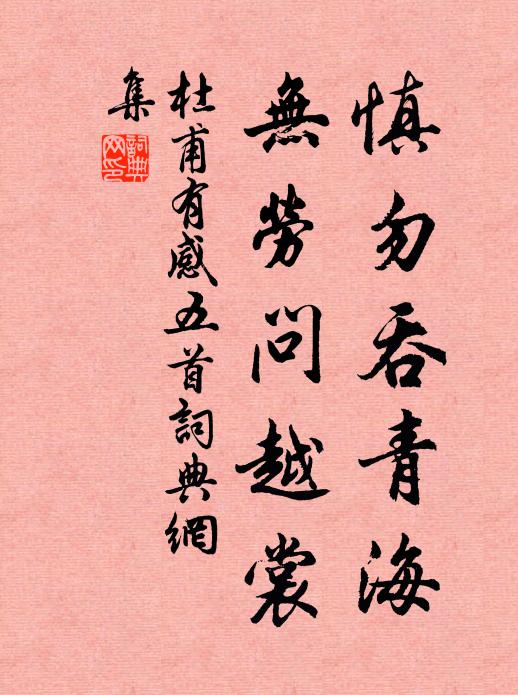 慎勿吞青海
無勞問越裳
杜甫有感五首詞典網
集
詞典
网印